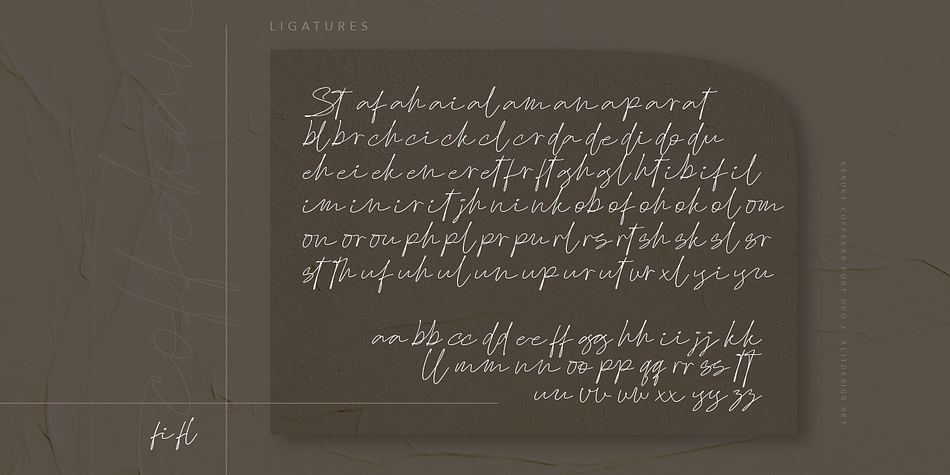 LIGATURES
St af ah ai al am an ap ar at
bl br ch ci ck cl cr da de di do du
eh ei ek en er et fr ft gh gl ht ib if il
im in ir it jh ni nk ob of oh ok ol om
on or ou ph pl pr pu rl rs rt sh sk sl sr
st Th uf uh ul un up ur ut wr xl yi yu
aa bb cc dd ee ff gg hh ii jj kk
ll mm nn oo pp qq rr ss tt
uu vv ww xx yy zz
fi fl
coffekan
RENDKY COFFEKAN FONT DUO / ALITDESIGN.NET